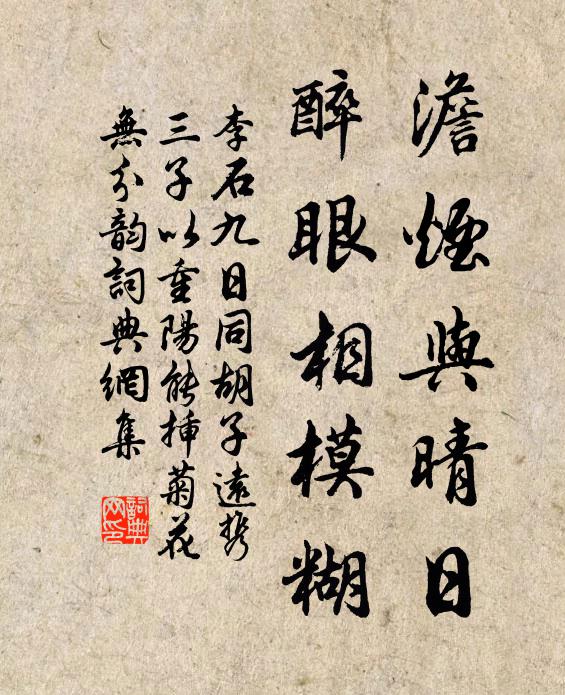 澹煙與晴日
醉眼相模糊
李石九日同胡子遠攜
三子以重陽能揷菊花
無分韵詞典網集
詞典
网印